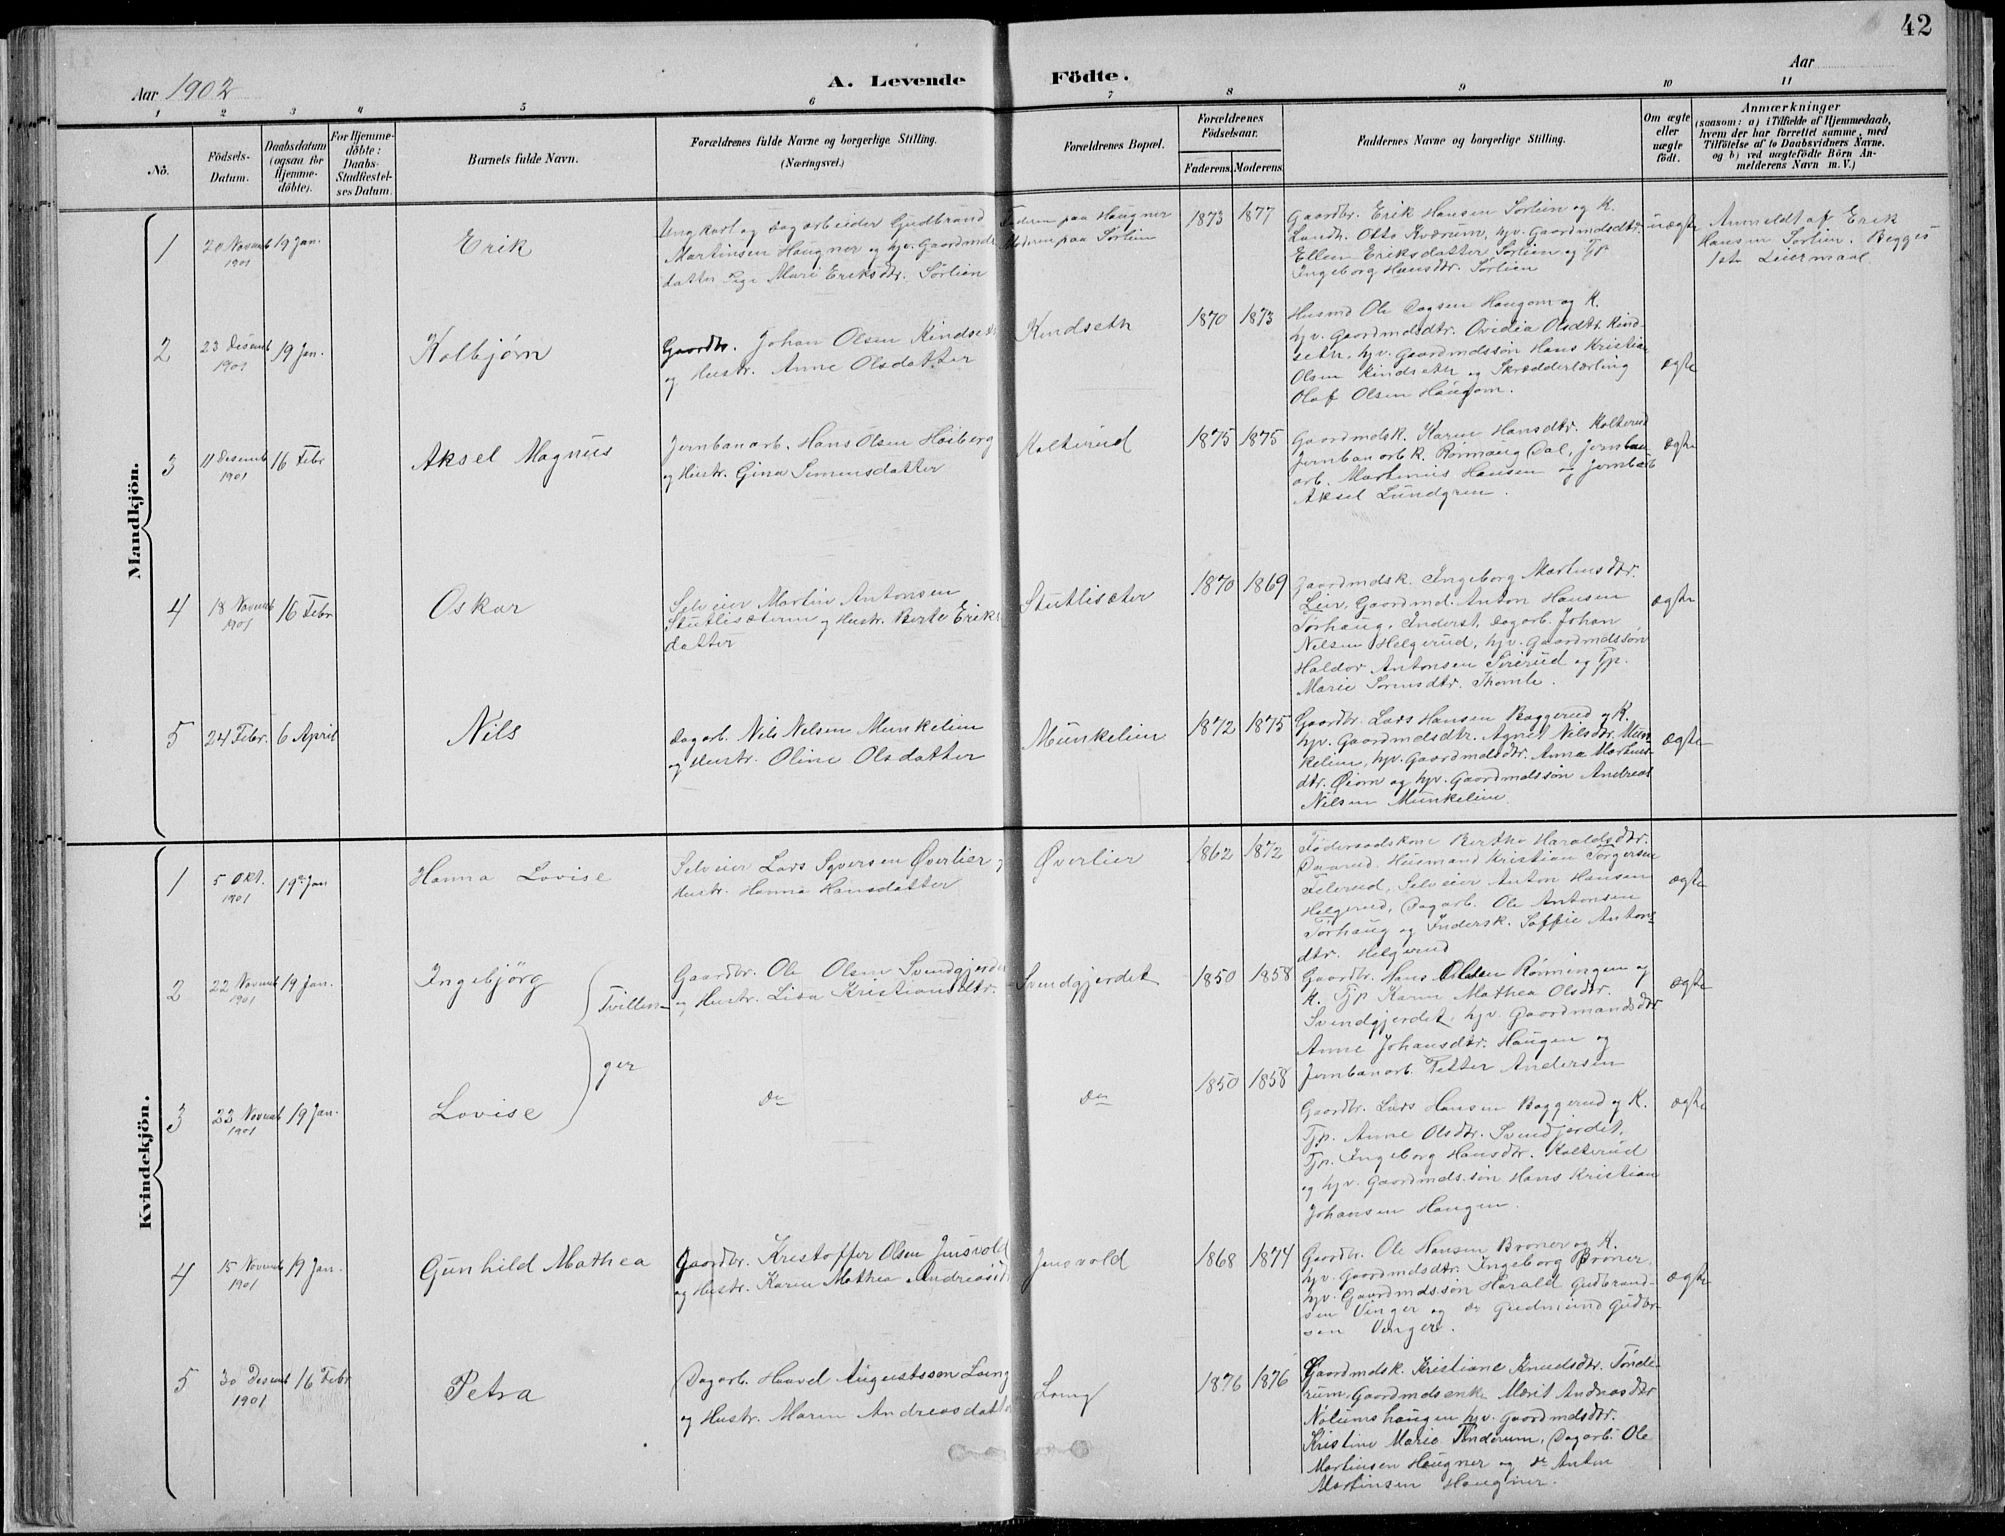 42
Aar 1902
A. Levende Födte.
Aar
1 2 3 4 5 6 7 8 9 10 11
No.
Födsels-Datum.
Daabsdatum (ogsaa for Hjemme-döbte).
For Hjemme-döbte: Daabs-Stadfæstel-ses Datum.
Barnets fulde Navn.
Forældrenes fulde Navne og borgerlige Stilling.
(Næringsvei.)
Forældrenes Bopæl.
Forældrenes Födselsaar.
Faderens. Moderens.
Faddernes Navne og borgerlige Stilling.
Om ægte eller uægte födt.
Anmærkninger
(saasom: a) i Tilfælde af Hjemmedaab,
hvem der har forrettet samme, med
Tilföielse af to Daabsvidners Navne,
og b) ved uægtefödte Börn An-
melderens Navn m. V.)
Mandkjön.
1
20 Novemb 1901
19 Jan.
Erik
Ungkarl og Dagarbeider Gudbrand
Martinsen Haugner og hjv. Gaardmds
datter Pige Mari Eriksdtr. Sørlien
Faderen paa Haugner
Moderen paa Sørlien
1873 1877
Gaardbr. Erik Hansen Sørlien og K.
Landh. Otto Kværum, hjv. Gaardmdsdtr.
Ellen Eriksdatter Sørlien og Tjp
Ingeborg Hansdtr. Sørlien
uægte
Anmeldt af Erik
Hansen Sørlien. Begges
1ste Leiermaal
2
23 Desemb 1901
19 Jan.
Kolbjørn
Gaardbr. Johan Olsen Kindseth
og Hustr. Anne Olsdatter
Kindseth
1870 1873
Husmd Ole Dagsen Haugom og K.
hjv. Gaardmdsdtr. Ovidia Olsdtr. Kind-
seth, hjv. Gaardmdssön Hans Kristian
Olsen Kindseth og Skrædderlærling
Olaf Olsen Haugom.
ægte
3
11 Desemb 1901
16 Febr
Aksel Magnus
Jernbanarb. Hans Olsen Høiberg
og Hustr. Gina Simensdatter
Kolterud
1875 1875
Gaardmdsk. Karen Hansdtr. Kolterud
Jernbanarb K. Rønnaug Dal, Jernban
arb. Martinus Hansen og Jernbarb
Aksel Lundgren.
ægte
4
18 Novemb 1901
16 Febr
Oskar
Selveier Martin Antonsen
Stutlisæteren og Hustr. Berte Eriks
datter
Stutlisæter
1870 1869
Gaardmdsk. Ingeborg Martinsdtr.
Lier, Gaardmd. Anton Hansen
Torhaug, Inderst, Dagarb. Johan
Nilsen Helgerud, hjv. Gaardmdssön
Haldor Antonsen Sverud og Tjp.
Marie Sørensdtr. Thomle.
ægte
5
24 Febr.
6 April
Nils
Dagarb. Nils Nelsen Munkelien
og Hustr. Oline Olsdatter
Munkelien
1872 1875
Gaardbr. Lars Hansen Baggerud og K.
hjv. Gaardmdsdtr. Agnet Nilsdtr. Mun-
kelien, hjv. Gaardmdsdtr. Anna Martins-
dtr. Øiom og hjv. Gaardmdssön Andreas
Nilsen Munkelien
ægte
Kvindekjön.
1
5 Okt. 1901
19de Jan
Hanna Lovise
Selveier Lars Syversen Øverlier og
Hustr. Hanna Hansdatter
Øverlier
1862 1872
Föderaadskone Berthe Haraldsdtr.
Daarud, Husmand Kristian Torgersen
Feierud, Selveier Anton Hansen
Helgerud, Dagarb. Ole Antonsen
Torhaug og Indersk. Saffie Antons
dtr. Helgerud
ægte
2
22 Novemb 1901
19 Jan.
Ingebjörg
Tvillin-
Gaardbr. Ole Olsen Svendgjerdet
og Hustr. Lisa Kristiansdtr.
Svendgjerdet
1850 1858
Gaardbr. Hans Olsen Rönningen og
K. Tjp Karen Mathea Olsdtr.
Svendgjerdet, hjv. Gaardmandsdtr
Anne Johansdtr. Haugen og
Jernbanarb. Petter Andersen
ægte
ger
3
23 Novemb 1901
19 Jan.
Lovise
Do
Do
1850 1858
Gaardbr. Lars Hansen Baggerud og K.
Tjp. Anne Olsdtr. Svendjerdet,
Tjp. Ingeborg Hansdtr. Kolterud
og hjv. Gaardmdssön Hans Kristian
Johansen Haugen.
ægte
4
15 Novemb 1901
19 Jan.
Gunhild Mathea
Gaardbr. Kristoffer Olsen Jensvold
og Hustr. Karen Mathea Andreasdtr
Jensvold
1868 1874
Gaardbr. Ole Hansen Broner og K.
hjv. Gaardmdsdtr. Ingeborg Broner,
hjv. Gaardmdssön Harald Gudbrand-
sen Vinger og do Gudmund Gudbr-
sen Vinger.
ægte
5
30 Desemb 1901
16 Febr
Petra
Dagarb. Haavel Augustssen Laug
og Hustr. Maren Andreasdatter
Laug
1876 1876
Gaardmdsk. Kristiane Knudsdtr. Tönde-
rum, Gaardmdsenke Marit Andreasdtr
Nolumshaugen hjv. Gaardmdsdtr.
Kristine Marie Tönderum, Dagarb. Ole
Martinsen Haugner og do Anton
Martinsen Haugner.